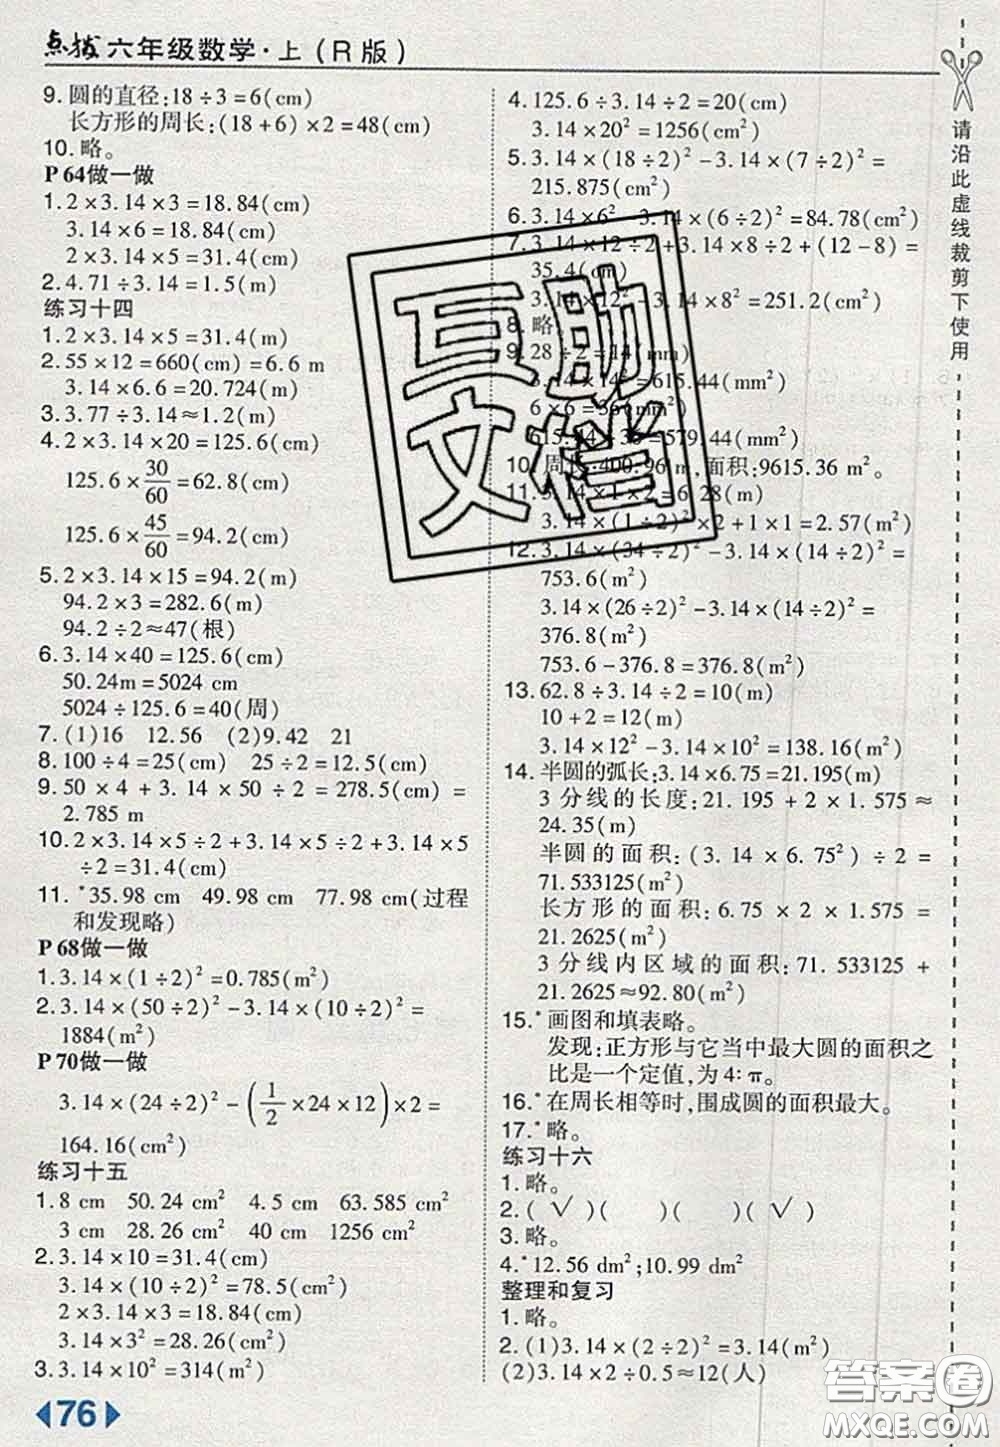 点拨 六年级数学·上(R版)
9.圆的直径:18÷3=6(cm)
长方形的周长:(18+6)×2=48(cm)
10.略。
P64做一做
1.2×3.14×3=18.84(cm)
3.14×6=18.84(cm)
2×3.14×5=31.4(cm)
2.4.71÷3.14=1.5(m)
练习十四
1.2×3.14×5=31.4(m)
2.55×12=660(cm)=6.6 m
3.14×6.6=20.724(m)
3.3.77÷3.14≈1.2(m)
4.2×3.14×20=125.6(cm)
125.6×30/60=62.8(cm)
125.6×45/60=94.2(cm)
5.2×3.14×15=94.2(m)
94.2×3=282.6(m)
94.2÷2≈47(根)
6.3.14×40=125.6(cm)
50.24m=5024 cm
5024÷125.6=40(周)
7.(1)16 12.56 (2)9.42 21
8.100÷4=25(cm) 25÷2=12.5(cm)
9.50×4+3.14×50÷2=278.5(cm)=
2.785 m
10.2×3.14×5÷2+3.14×5÷2+3.14×5
÷2=31.4(cm)
11.*35.98 cm 49.98 cm 77.98 cm(过程
和发现略)
P68做一做
1.3.14×(1÷2)²=0.785(m²)
2.3.14×(50÷2)²-3.14×(10÷2)²=
1884(m²)
P70做一做
3.14×(24÷2)²-(1/2×24×12)×2=
164.16(cm²)
练习十五
1.8 cm 50.24 cm² 4.5 cm 63.585 cm²
3 cm 28.26 cm² 40 cm 1256 cm²
2.3.14×10=31.4(cm)
3.14×(10÷2)²=78.5(cm²)
2×3.14×3=18.84(cm)
3.14×3²=28.26(cm²)
3.3.14×10²=314(m²)
4.125.6÷3.14÷2=20(cm)
3.14×20²=1256(cm²)
5.3.14×(18÷2)²-3.14×(7÷2)²=
215.875(cm²)
6.3.14×6²-3.14×(6÷2)²=84.78(cm²)
7.3.14×12÷2+3.14×8÷2+(12-8)=
35.4(cm)
3.14×12²-3.14×8²=251.2(cm²)
8.略。
9.28÷2=14(mm)
3.14×14²=615.44(mm²)
6×6=36(mm²)
615.44-36=579.44(mm²)
10.周长:400.96 m,面积:9615.36 m²。
11.3.14×1×2=6.28(m)
3.14×(1÷2)²×2+1×1=2.57(m²)
12.3.14×(34÷2)²-3.14×(14÷2)²=
753.6(m²)
3.14×(26÷2)²-3.14×(14÷2)²=
376.8(m²)
753.6-376.8=376.8(m²)
13.62.8÷3.14÷2=10(m)
10+2=12(m)
3.14×12²-3.14×10²=138.16(m²)
14.半圆的弧长:3.14×6.75=21.195(m)
3分线的长度:21.195+2×1.575≈
24.35(m)
半圆的面积:(3.14×6.75²)÷2=
71.533125(m²)
长方形的面积:6.75×2×1.575=
21.2625(m²)
3分线内区域的面积:71.533125+
21.2625≈92.80(m²)
15.*画图和填表略。
发现:正方形与它当中最大圆的面积之
比是一个定值,为4:π。
16.*在周长相等时,围成圆的面积最大。
17.*略。
练习十六
1.略。
2.(√)( )( )(√)
3.略。
4.*12.56 dm²;10.99 dm²
整理和复习
1.略。
2.(1)3.14×(2÷2)²=3.14(m²)
(2)3.14×2÷0.5≈12(人)
请沿此虚线裁剪下使用
76
互助文档
答案圈
MXQE.COM